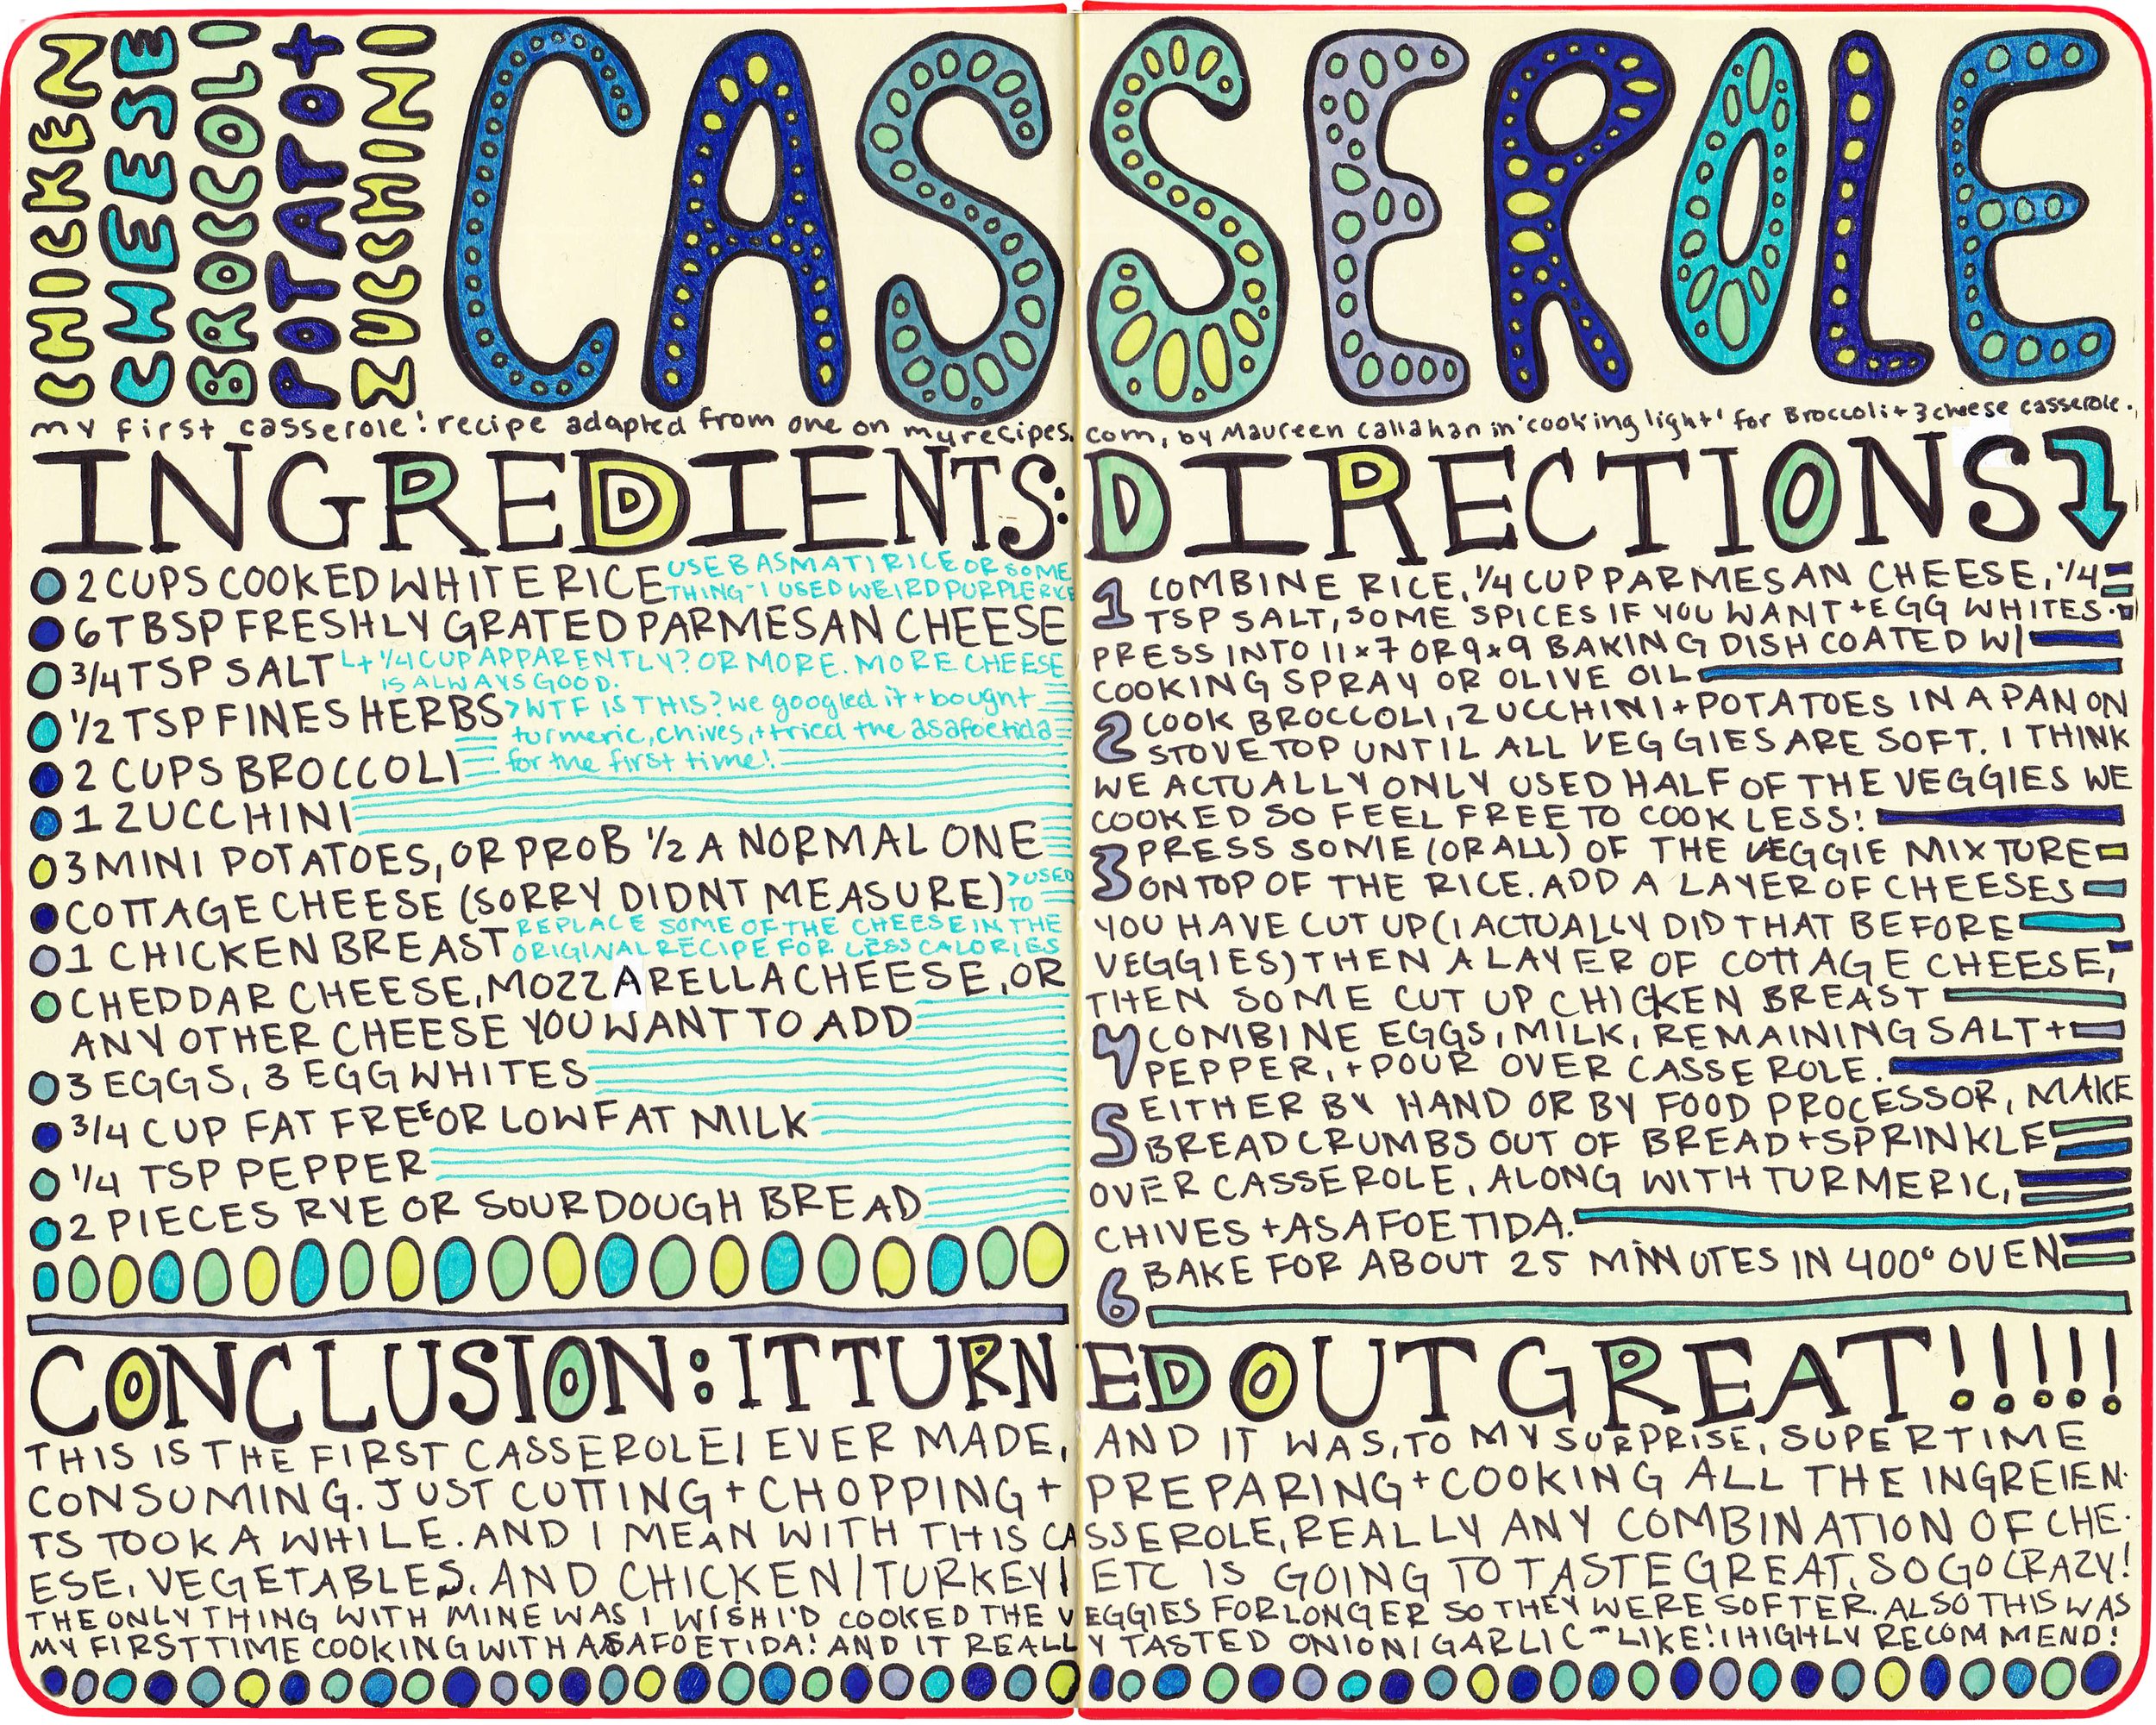 CHICKEN
CHEESE
BROCCOLI
POTATO +
ZUCCHINI
CASSEROLE
my first casserole! recipe adapted from one on myrecipes.com, by Maureen Callahan in 'cooking light' for Broccoli + 3 cheese casserole.
INGREDIENTS:
2 CUPS COOKED WHITE RICE
USE BASMATI RICE OR SOME
THING - I USED WEIRD PURPLE RICE
6 TBSP FRESHLY GRATED PARMESAN CHEESE
L+ 1/4 CUP APPARENTLY? OR MORE. MORE CHEESE
IS ALWAYS GOOD.
3/4 TSP SALT
1/2 TSP FINES HERBS
>WTF IS THIS? we googled it + bought
turmeric, chives, + tried the asafoetida
for the first time!
2 CUPS BROCCOLI
1 ZUCCHINI
3 MINI POTATOES, OR PROB 1/2 A NORMAL ONE
COTTAGE CHEESE (SORRY DIDNT MEASURE)
>USED
TO
REPLACE SOME OF THE CHEESE IN THE
ORIGINAL RECIPE FOR LESS CALORIES
1 CHICKEN BREAST
CHEDDAR CHEESE, MOZZARELLA CHEESE, OR
ANY OTHER CHEESE YOU WANT TO ADD
3 EGGS, 3 EGG WHITES
3/4 CUP FAT FREE OR LOWFAT MILK
1/4 TSP PEPPER
2 PIECES RYE OR SOURDOUGH BREAD
DIRECTIONS
1 COMBINE RICE, 1/4 CUP PARMESAN CHEESE, 1/4
TSP SALT, SOME SPICES IF YOU WANT + EGG WHITES.
PRESS INTO 11x7 OR 9x9 BAKING DISH COATED W/
COOKING SPRAY OR OLIVE OIL
2 COOK BROCCOLI, ZUCCHINI + POTATOES IN A PAN ON
STOVE TOP UNTIL ALL VEGGIES ARE SOFT. I THINK
WE ACTUALLY ONLY USED HALF OF THE VEGGIES WE
COOKED SO FEEL FREE TO COOK LESS!
3 PRESS SOME (OR ALL) OF THE VEGGIE MIXTURE
ON TOP OF THE RICE. ADD A LAYER OF CHEESES
YOU HAVE CUT UP (I ACTUALLY DID THAT BEFORE
VEGGIES) THEN A LAYER OF COTTAGE CHEESE,
THEN SOME CUT UP CHICKEN BREAST
4 COMBINE EGGS, MILK, REMAINING SALT +
PEPPER, + POUR OVER CASSEROLE.
5 EITHER BY HAND OR BY FOOD PROCESSOR, MAKE
BREADCRUMBS OUT OF BREAD + SPRINKLE
OVER CASSEROLE, ALONG WITH TURMERIC,
CHIVES + ASAFOETIDA.
6 BAKE FOR ABOUT 25 MINUTES IN 400° OVEN
CONCLUSION: IT TURNED OUT GREAT!!!!!
THIS IS THE FIRST CASSEROLE I EVER MADE, AND IT WAS, TO MY SURPRISE, SUPER TIME
CONSUMING. JUST CUTTING + CHOPPING + PREPARING + COOKING ALL THE INGREIEN-
TS TOOK A WHILE. AND I MEAN WITH THIS CASSEROLE, REALLY ANY COMBINATION OF CHE-
ESE, VEGETABLES, AND CHICKEN/TURKEY/ETC IS GOING TO TASTE GREAT, SO GO CRAZY!
THE ONLY THING WITH MINE WAS I WISH I'D COOKED THE VEGGIES FOR LONGER SO THEY WERE SOFTER. ALSO THIS WAS
MY FIRST TIME COOKING WITH ASAFOETIDA! AND IT REALLY TASTED ONION/GARLIC-LIKE! I HIGHLY RECOMMEND!